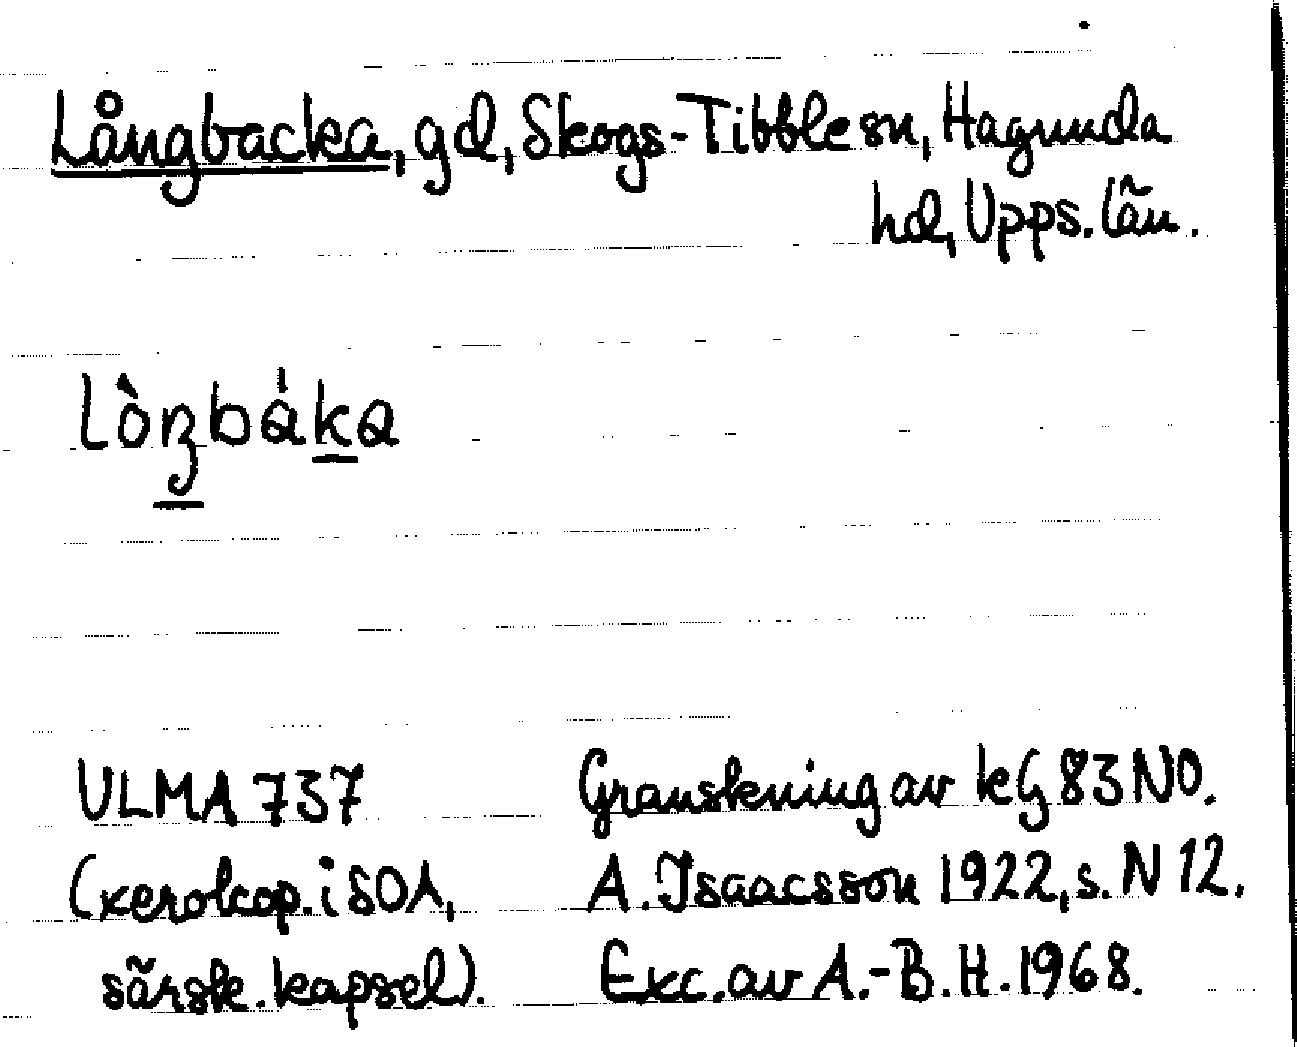 Långbacka, gd, Skogs-Tibble sn, Hagunda
hd, Upps. län.
lòŋbáka
ULMA 737
(xerokop. i SOA,
särsk. kapsel).
Granskning av kG 83 NO.
A. Isaacsson 1922, s. N 12.
Exc. av A.-B. H. 1968.